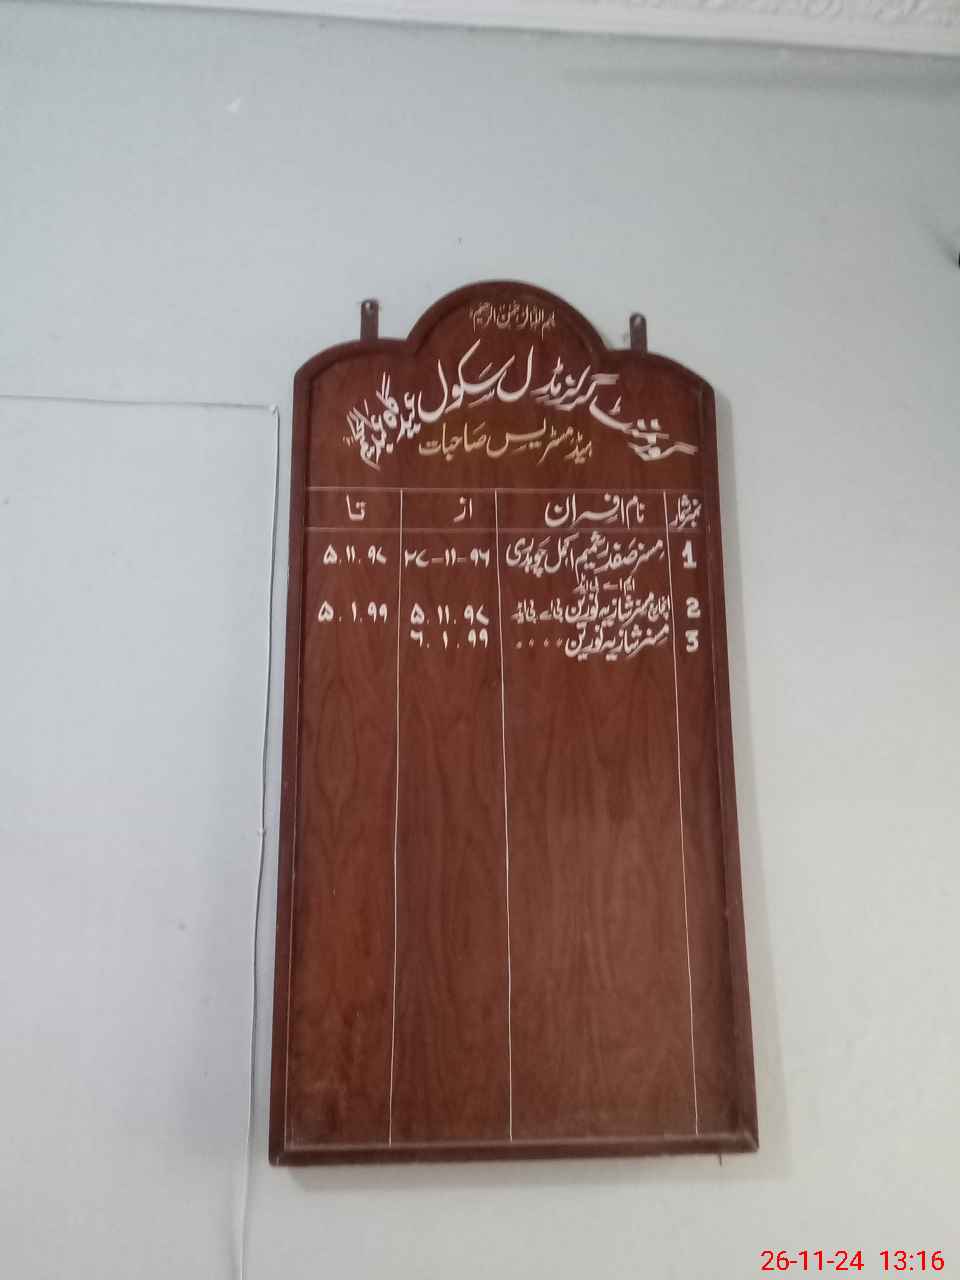 بسم اللہ الرحمن الرحیم
گورنمنٹ گرلز مڈل سکول عید گاہ
ہیڈ مسٹریس صاحبات
نمبر شمار نام افسران از تا
1 مسز صفدر شمیم اکمل چوہدری ۲۷-۱۱-۹۶ ۵.۱۱.۹۷
ایم اے بی ایڈ
2 انچارج مسز شازیہ نورین بی اے بی ایڈ ۵.۱۱.۹۷ ۵.۱.۹۹
3 مسز شازیہ نورین 〃 〃 〃 〃 ۶.۱.۹۹
26-11-24 13:16